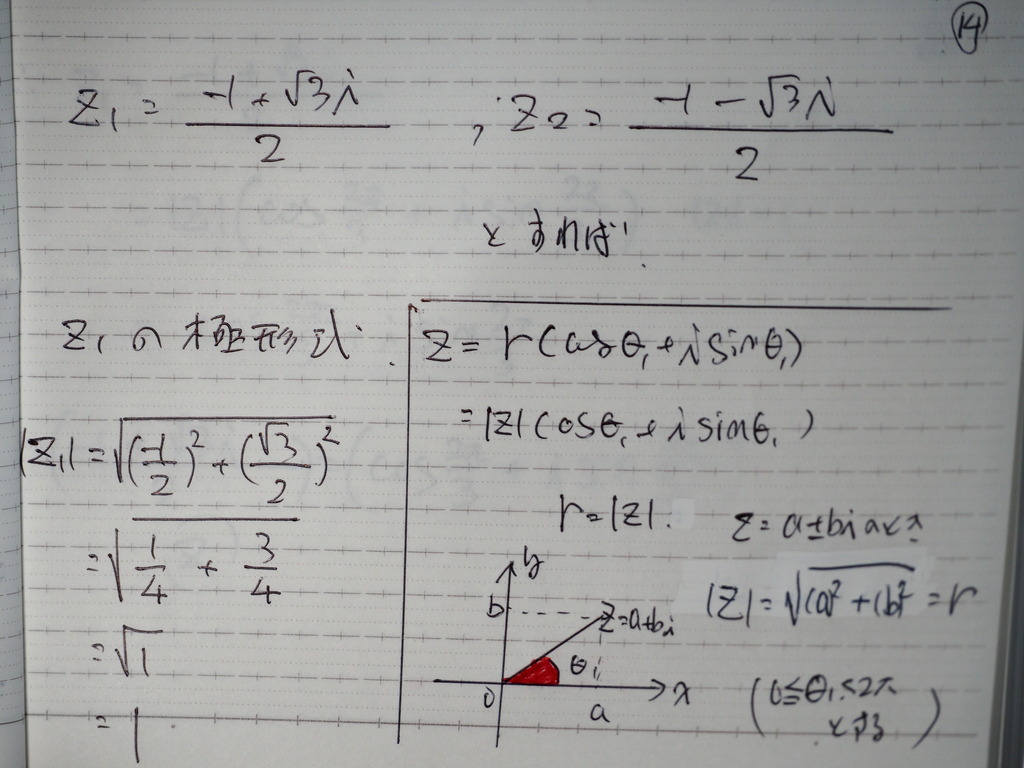 ⑭
Z₁ = (-1 + √3i)/2 , Z₂ = (-1 - √3i)/2
とすれば
Z₁の極形式
|Z₁| = √((-1/2)² + (√3/2)²)
= √(1/4 + 3/4)
= √1
= 1
Z = r(cosθ₁ + i sinθ₁)
= |Z|(cosθ₁ + i sinθ₁)
r = |Z|.
Z = a ± bi のとき
|Z| = √((a)² + (b)²) = r
y
b
Z = a + bi
θ₁
0
a
x
(0 ≦ θ₁ < 2π
とする)